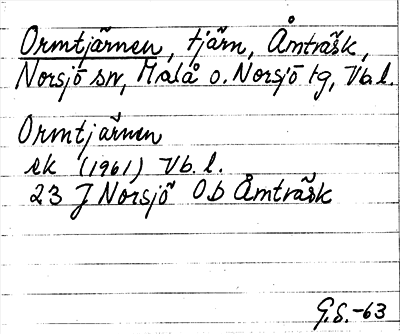 Ormtjärnen, tjärn, Åmträsk,
Norsjö sn, Malå o. Norsjö tg, Vb.l.
Ormtjärnen
ek (1961) Vb. l.
23 J Norsjö Ob Åmträsk
G.S.-63